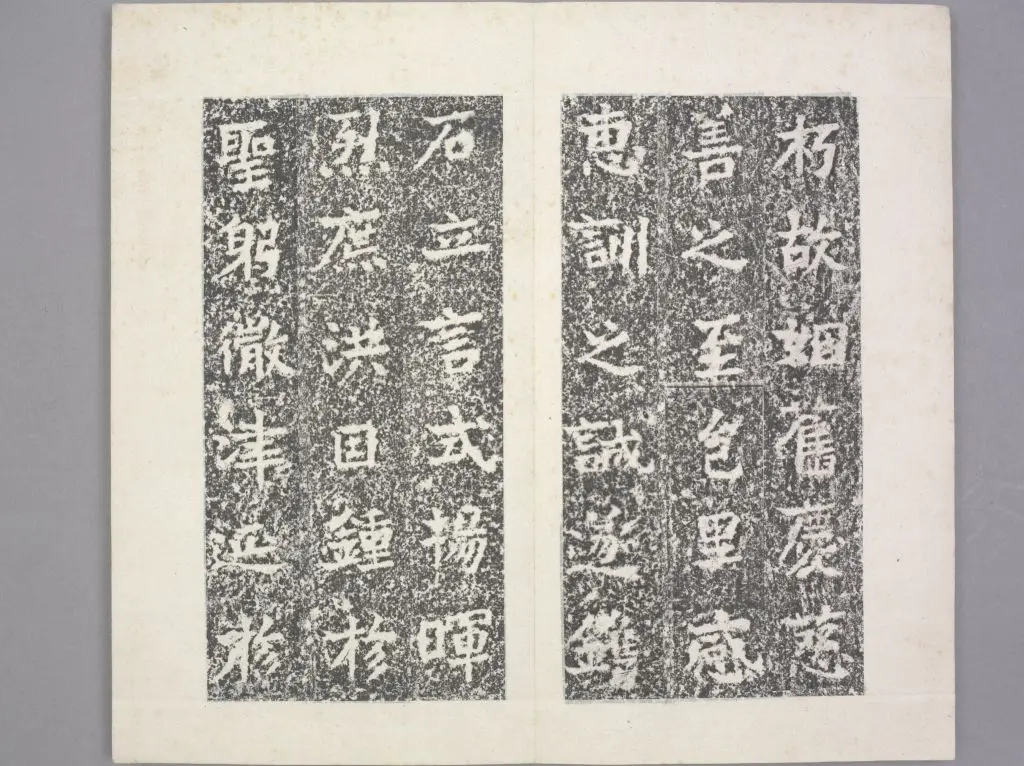 朽故姻舊慶慈
善之至邑里感
恵訓之誠遂鐫
石立言式揚暉
烈庶洪因鍾於
聖躬微津延於